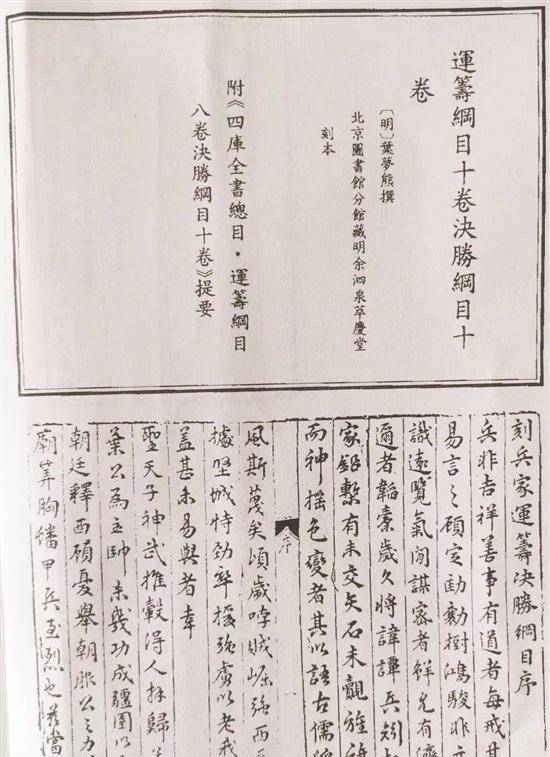 運籌綱目十卷決勝綱目十
卷
〔明〕葉夢熊撰
北京圖書館分館藏明余泗泉萃慶堂
刻本
附《四庫全書總目·運籌綱目
八卷決勝綱目十卷》提要
刻兵家運籌決勝綱目序
兵非吉祥善事有道者每戒其
易言之顧定勳樹鴻駿非
識遠覽氣閒謀密者鮮允有濟
邇者韜橐歲久將諱譚兵
家鉛槧有未交矢石未覿旌
而神搖色變者其以語古儒
序
風斯蔑矣頃歲哱賊崛強西
據堅城恃勁率援強虜以老我
蓋甚未易與者幸
聖天子神武推轂得人
葉公爲主帥未幾功成疆圉以
朝廷釋西顧憂舉朝服公之力
廟筭胸蟠甲兵至烈也茲當